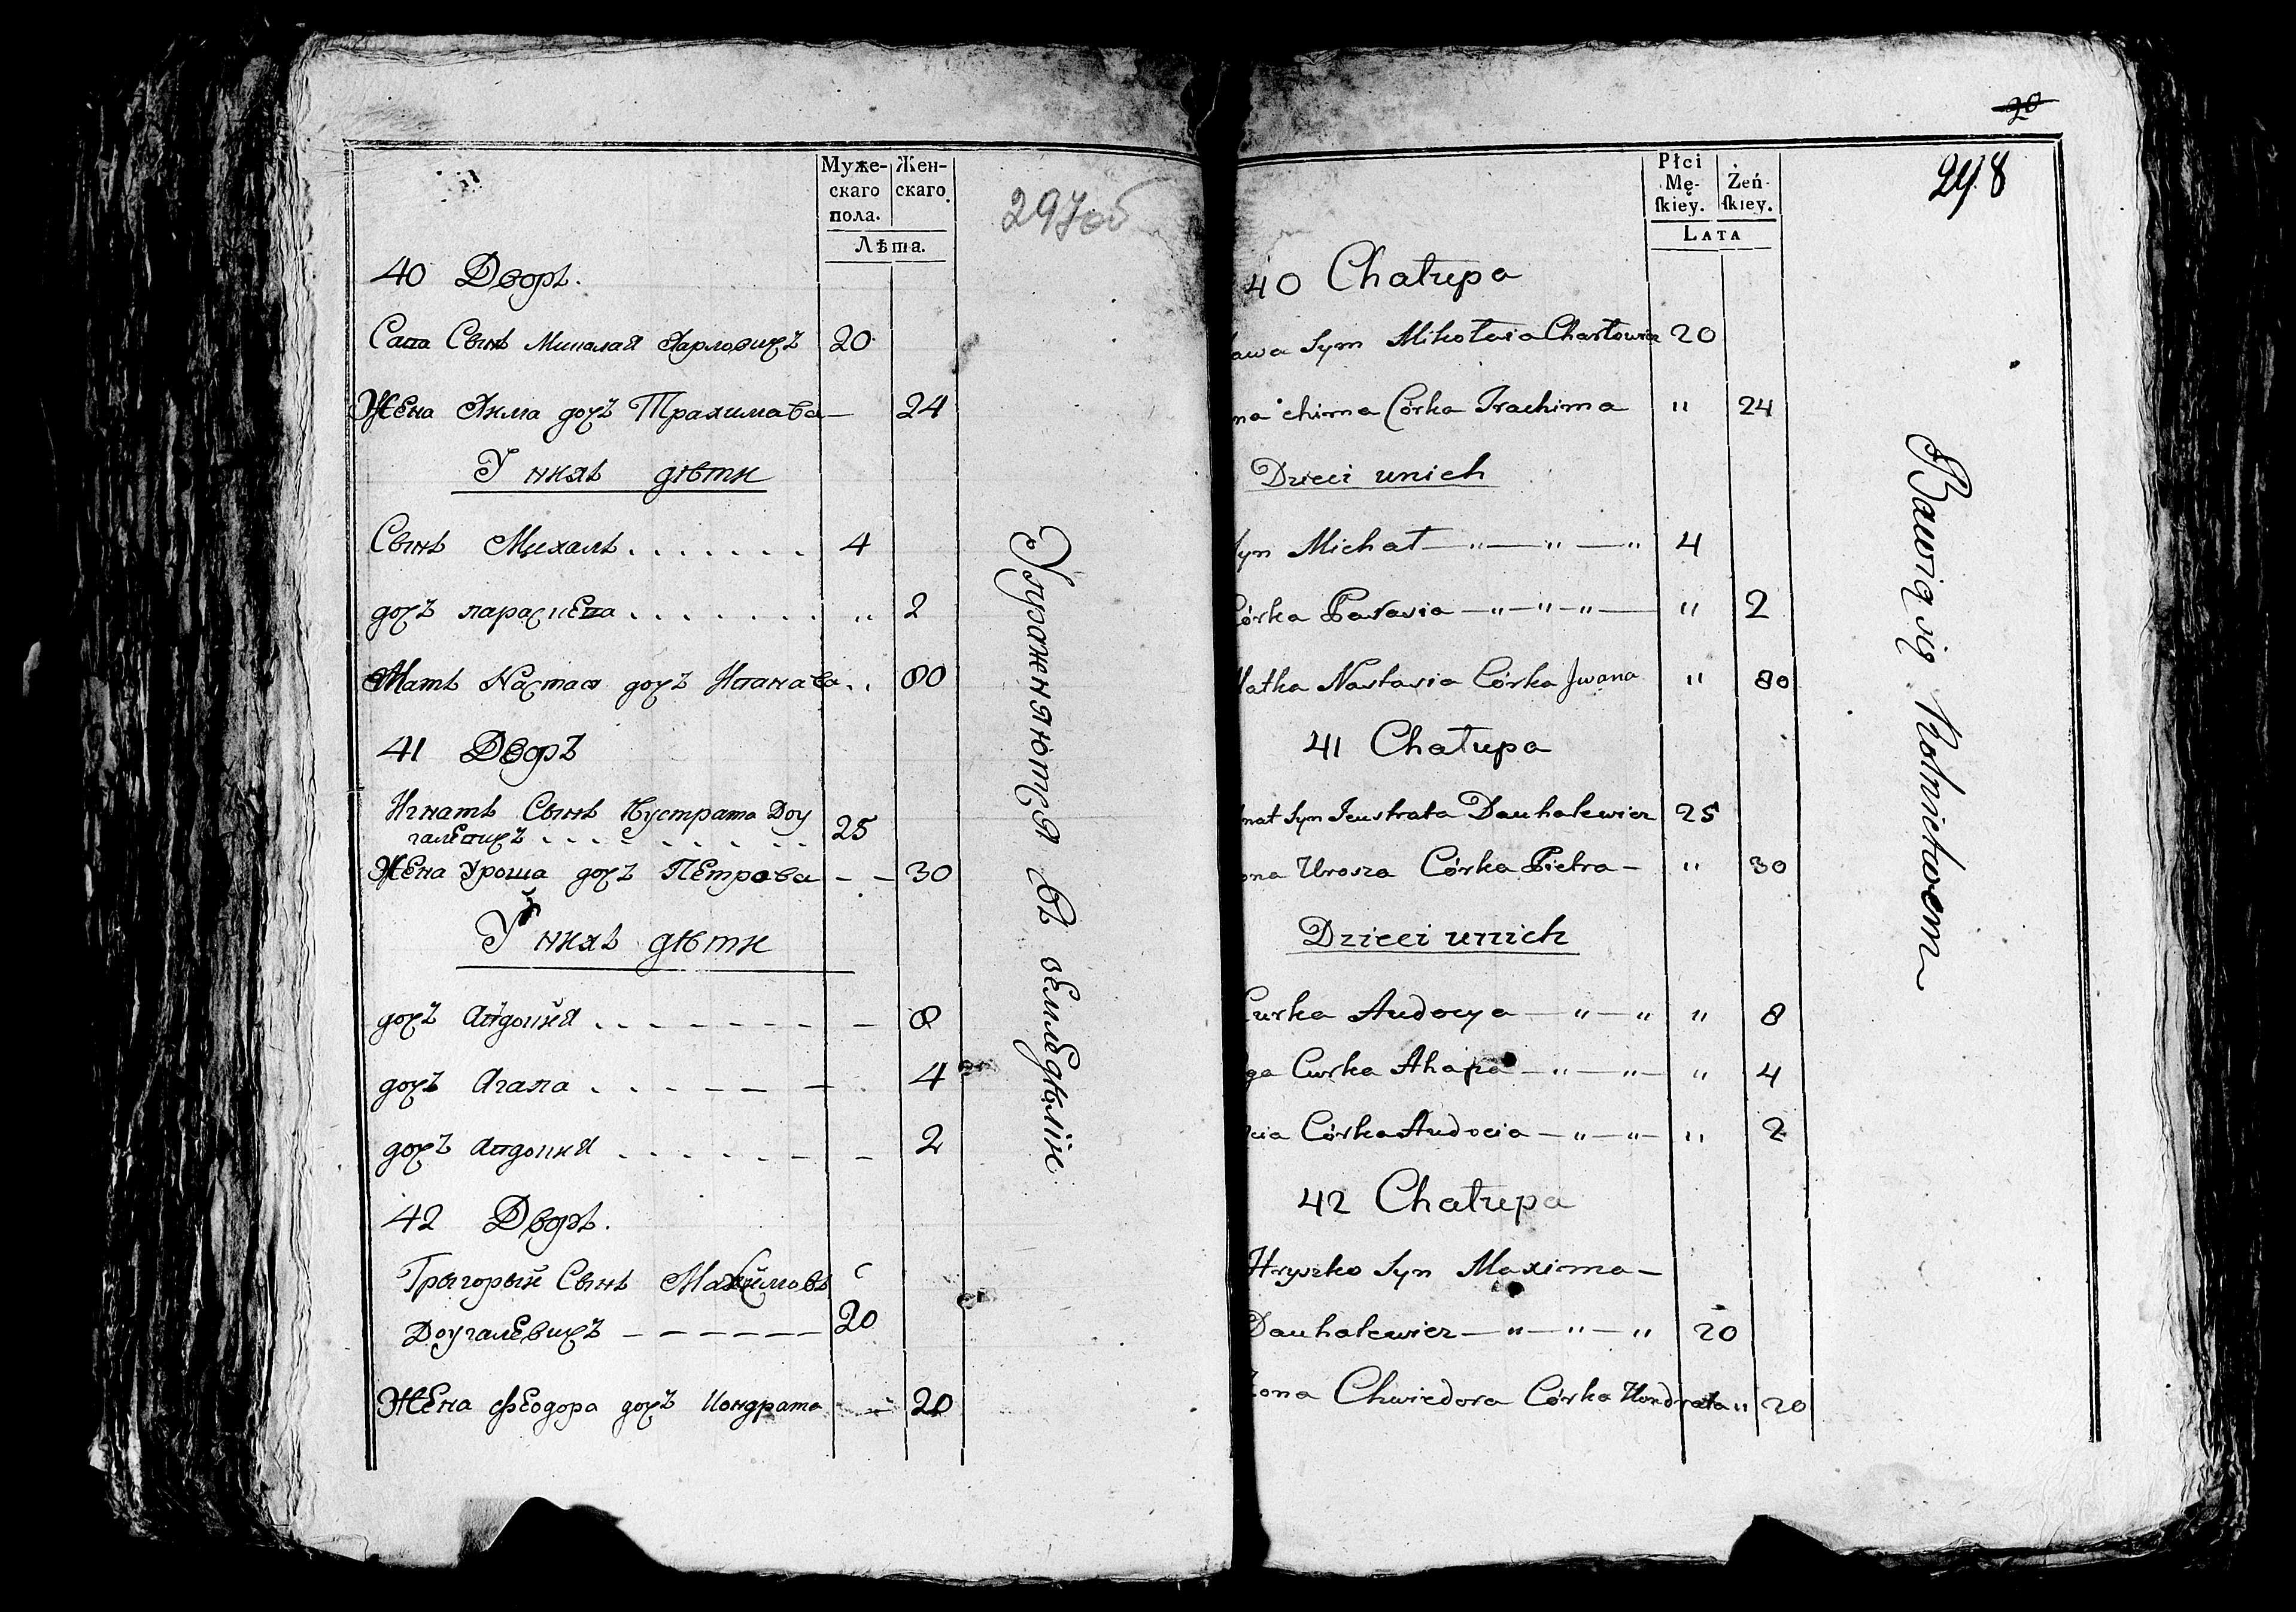 Муже-
скаго
пола.
Жен-
скаго.
Лѣта.
297об
40 Дворъ.
Сава Сынъ Миколая Харловичъ 20
Жена Хима дочъ Трахимава — 24
У нихъ дѣти
Сынъ Михалъ . . . . . . . 4
дочъ парасцева . . . . . . . „ 2
Мать Настася дочъ Ивана̀ва . . 80
41 Дворъ
Игнатъ Сынъ Яустрата Доу
галевичъ . . . . . . . . . 25
Жена Уроша дочъ Петрова — — 30
У нихъ дѣти
дочъ Аўдоция . - - - - - - — 8
дочъ Агапа . . - — — — 4
дочъ Авдоция . - - - - - — 2
42 Дворъ.
Грыгорый Сынъ Максимовъ
Доугалевичъ — — — — — — 20
Жена феодора дочъ Кондрата — 20
Упражняются въ землѣдѣліи
20
298
Płci
Mę-
ſkiey.
Żeń-
ſkiey.
LATA
40 Chałupa
awa Syn Mikołaia Charłowicz 20
na chima Córka Trachima " 24
Dzieci unich
Syn Michał — " — " — " 4
Córka Parasia — " — " — " — " 2
Matka Nastasia Córka Jwana " 80
41 Chałupa
nat Syn Jeustrata Dauhalewicz 25
ona Urosza Córka Pietra — " 30
Dzieci unich
Curka Audocya — " — " " 8
ga Curka Ahapa — " — " — " 4
cia Córka Audocia — " — " — " 2
42 Chałupa
Hryszko Syn Maxima —
Dauhalewicz — " — " — " 20
Żona Chwiedora Córka Kondrata " 20
Bawią się Rolnictwem